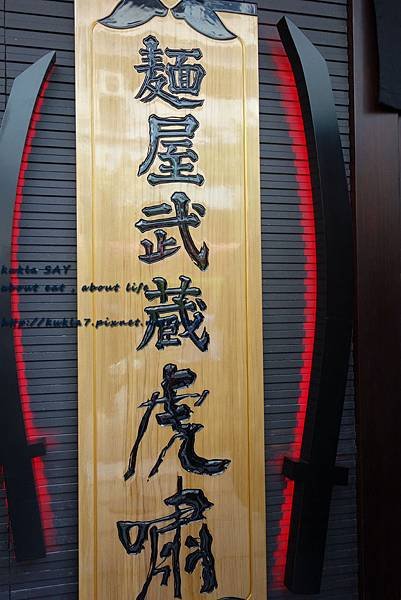 麺屋武蔵虎嘯
kukla SAY
about eat , about life
http://kukla7.pixnet.